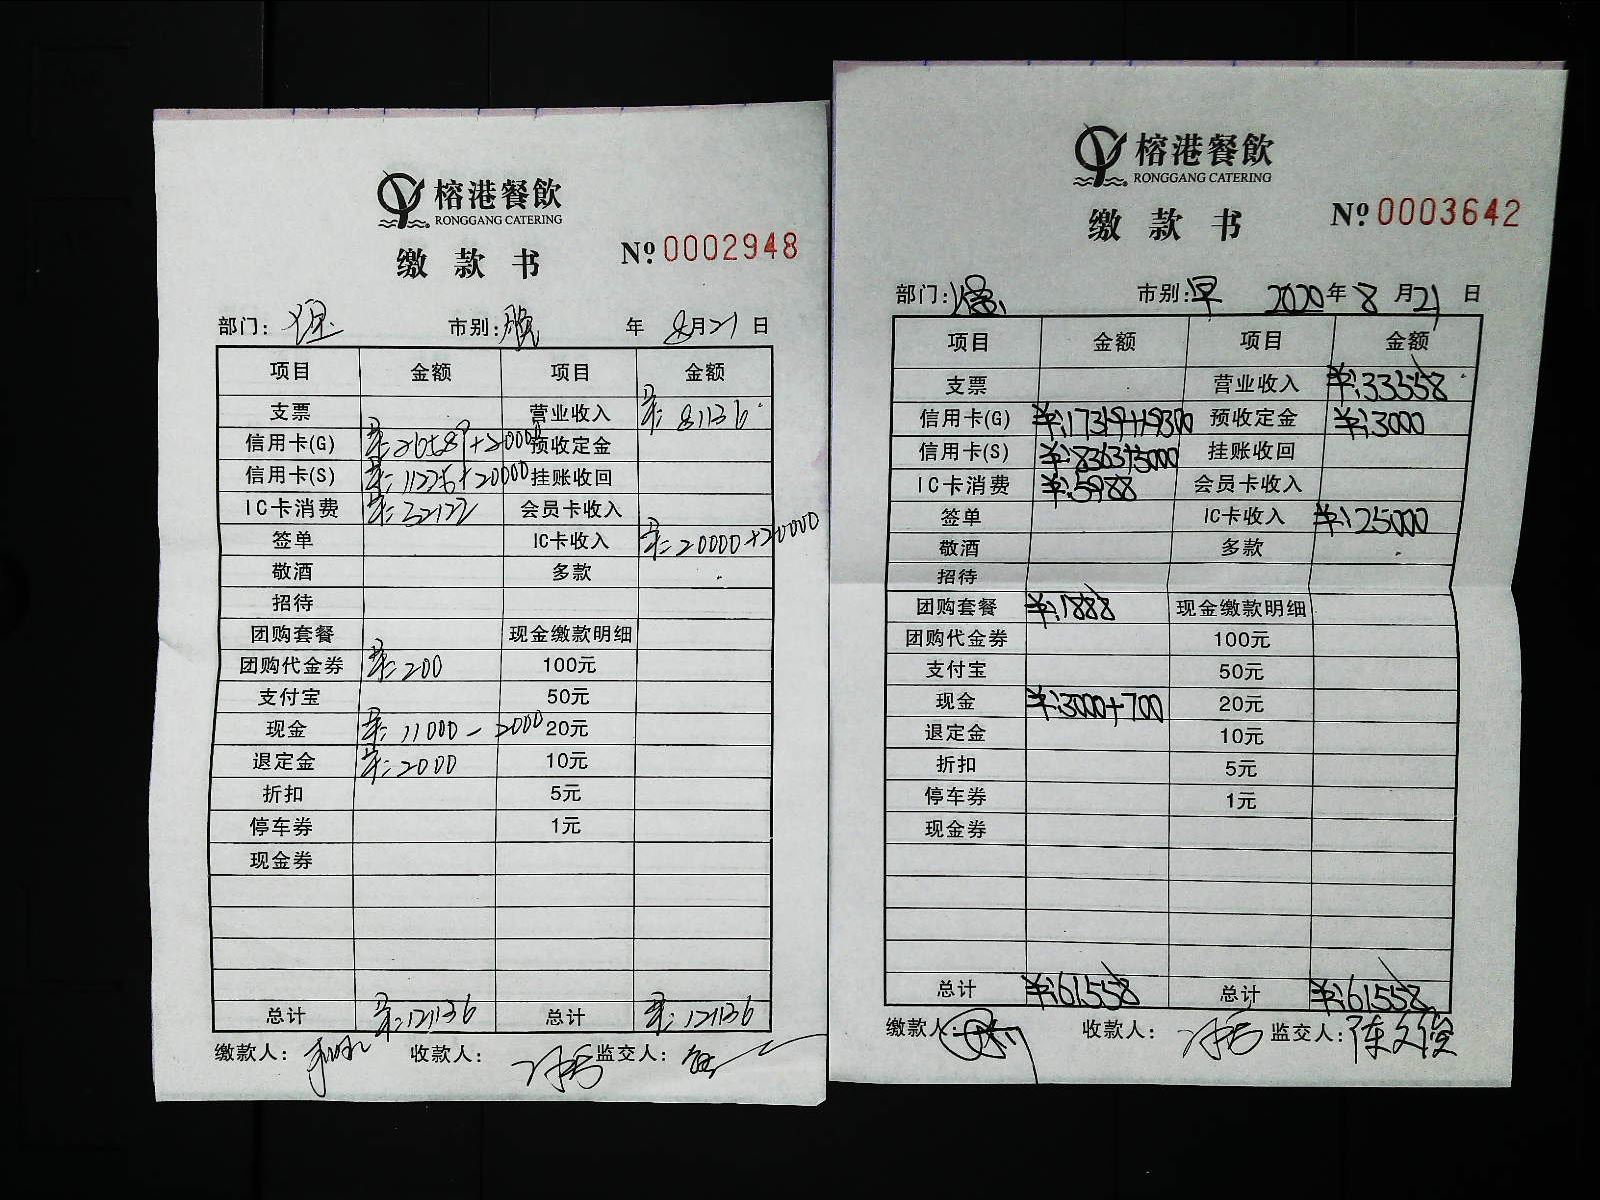 榕港餐飲
RONGGANG CATERING
缴款书
№ 0002948
部门: 市别:晚 年 8月21日
项目 金额 项目 金额
支票 营业收入 81136
信用卡(G) 26589+20000 预收定金
信用卡(S) 11225+20000 挂账收回
IC卡消费 32122 会员卡收入
签单 IC卡收入 20000+20000
敬酒 多款
招待
团购套餐 现金缴款明细
团购代金券 200 100元
支付宝 50元
现金 11000-2000 20元
退定金 2000 10元
折扣 5元
停车券 1元
现金券
总计 121136 总计 121136
缴款人: 收款人: 监交人:
榕港餐飲
RONGGANG CATERING
缴款书
№ 0003642
部门: 市别:早 2020年8月21日
项目 金额 项目 金额
支票 营业收入 ¥:33558
信用卡(G) ¥:17319+19300 预收定金 ¥:3000
信用卡(S) ¥:8363+5000 挂账收回
IC卡消费 ¥:5988 会员卡收入
签单 IC卡收入 ¥:25000
敬酒 多款
招待
团购套餐 ¥:1888 现金缴款明细
团购代金券 100元
支付宝 50元
现金 ¥:3000+700 20元
退定金 10元
折扣 5元
停车券 1元
现金券
总计 ¥:61558 总计 ¥:61558
缴款人: 收款人: 监交人:陈文俊